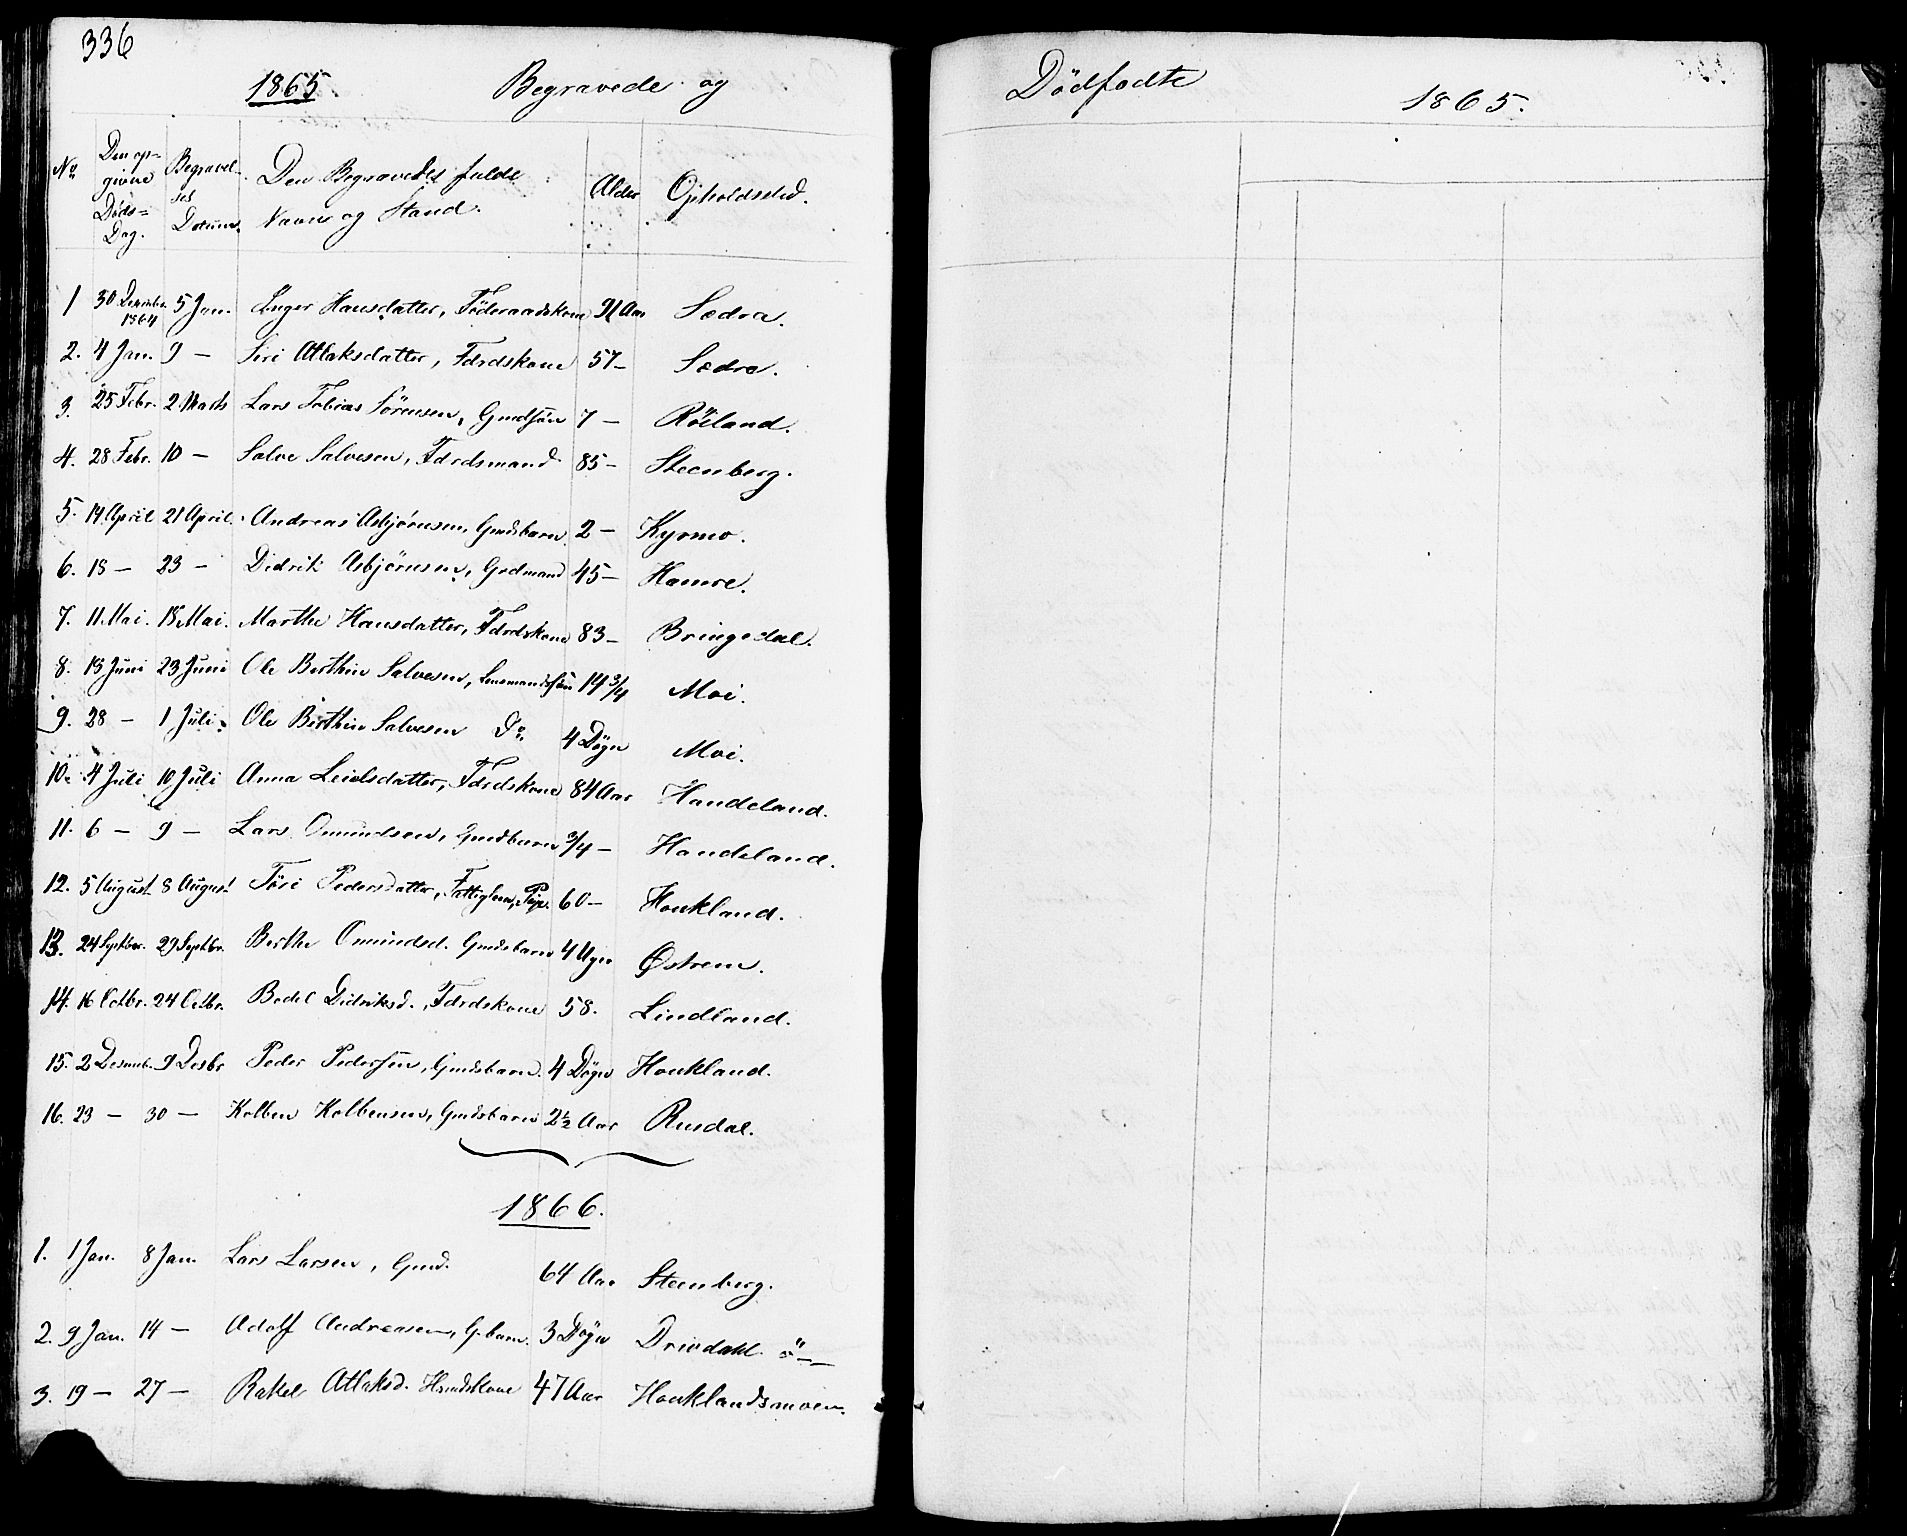 336
1865 Begravede og
No Den op= givne Døds= Dag. Begravel- ses Datum. Den Begravedes fulde Navn og Stand. Alder Opholdssted.
1 30 Decembr. 1864 5 Jan. Inger Hansdatter, Föderaadskone 91 Aar Sædra.
2. 4 Jan. 9 — Siri Atlaksdatter, Fdrdskone 57 — Sædra.
3. 25 Febr. 2 Marts Lars Tobias Sörensen, Gmdsön 7 — Röiland.
4. 28 Febr. 10 — Salve Salvesen, Fdrdsmand 85 — Steenberg.
5. 14 April 21 April. Andreas Asbjørnsen, Gmdsbarn 2 — Kyrmo.
6. 18 — 23 — Didrik Asbjørnsen, Grdmand 45 — Hamre.
7. 11 Mai. 18 Mai. Marthe Hansdatter, Fdrdskone 83 — Bringedal.
8. 13 Juni 23 Juni Ole Berthin Salvesen, Lensmandssön 14 3/4 Moi.
9. 28 — 1 Juli. Ole Berthin Salvesen Do 4 Døgn Moi.
10. 4 Juli 10 Juli Anna Leielsdatter, Fdrdskone 84 Aar Handeland.
11. 6 — 9 — Lars Omundsen, Gmdbarn 3/4 — Handeland.
12. 5 August 8 August Töri Pedersdatter, Fattiglem, Pige. 60 — Houkland.
13. 24 Septbr. 29 Septbr. Berthe Omundsd. Gmdsbarn 4 Uger Østrem.
14. 16 Octbr. 24 Octbr. Bodel Didriksd., Fdrdskone 58. Lindland.
15. 2 Decmb. 9 Decbr Peder Pedersen, Gmdsbarn. 4 Døgn Houkland.
16. 23 — 30 — Kolben Kolbensen, Gmdsbarn 2 1/2 Aar Rusdal.
1866.
1. 1 Jan. 8 Jan. Lars Larsen, Gmd. 64 Aar Steenberg.
2. 9 Jan. 14 — Adolf Andreasen, G.barn. 3 Døgn Drivdahl.
3. 19 — 27 — Rakel Atlaksd. Husmdskone 47 Aar Houklandsmoen.
Dödfödte 1865.